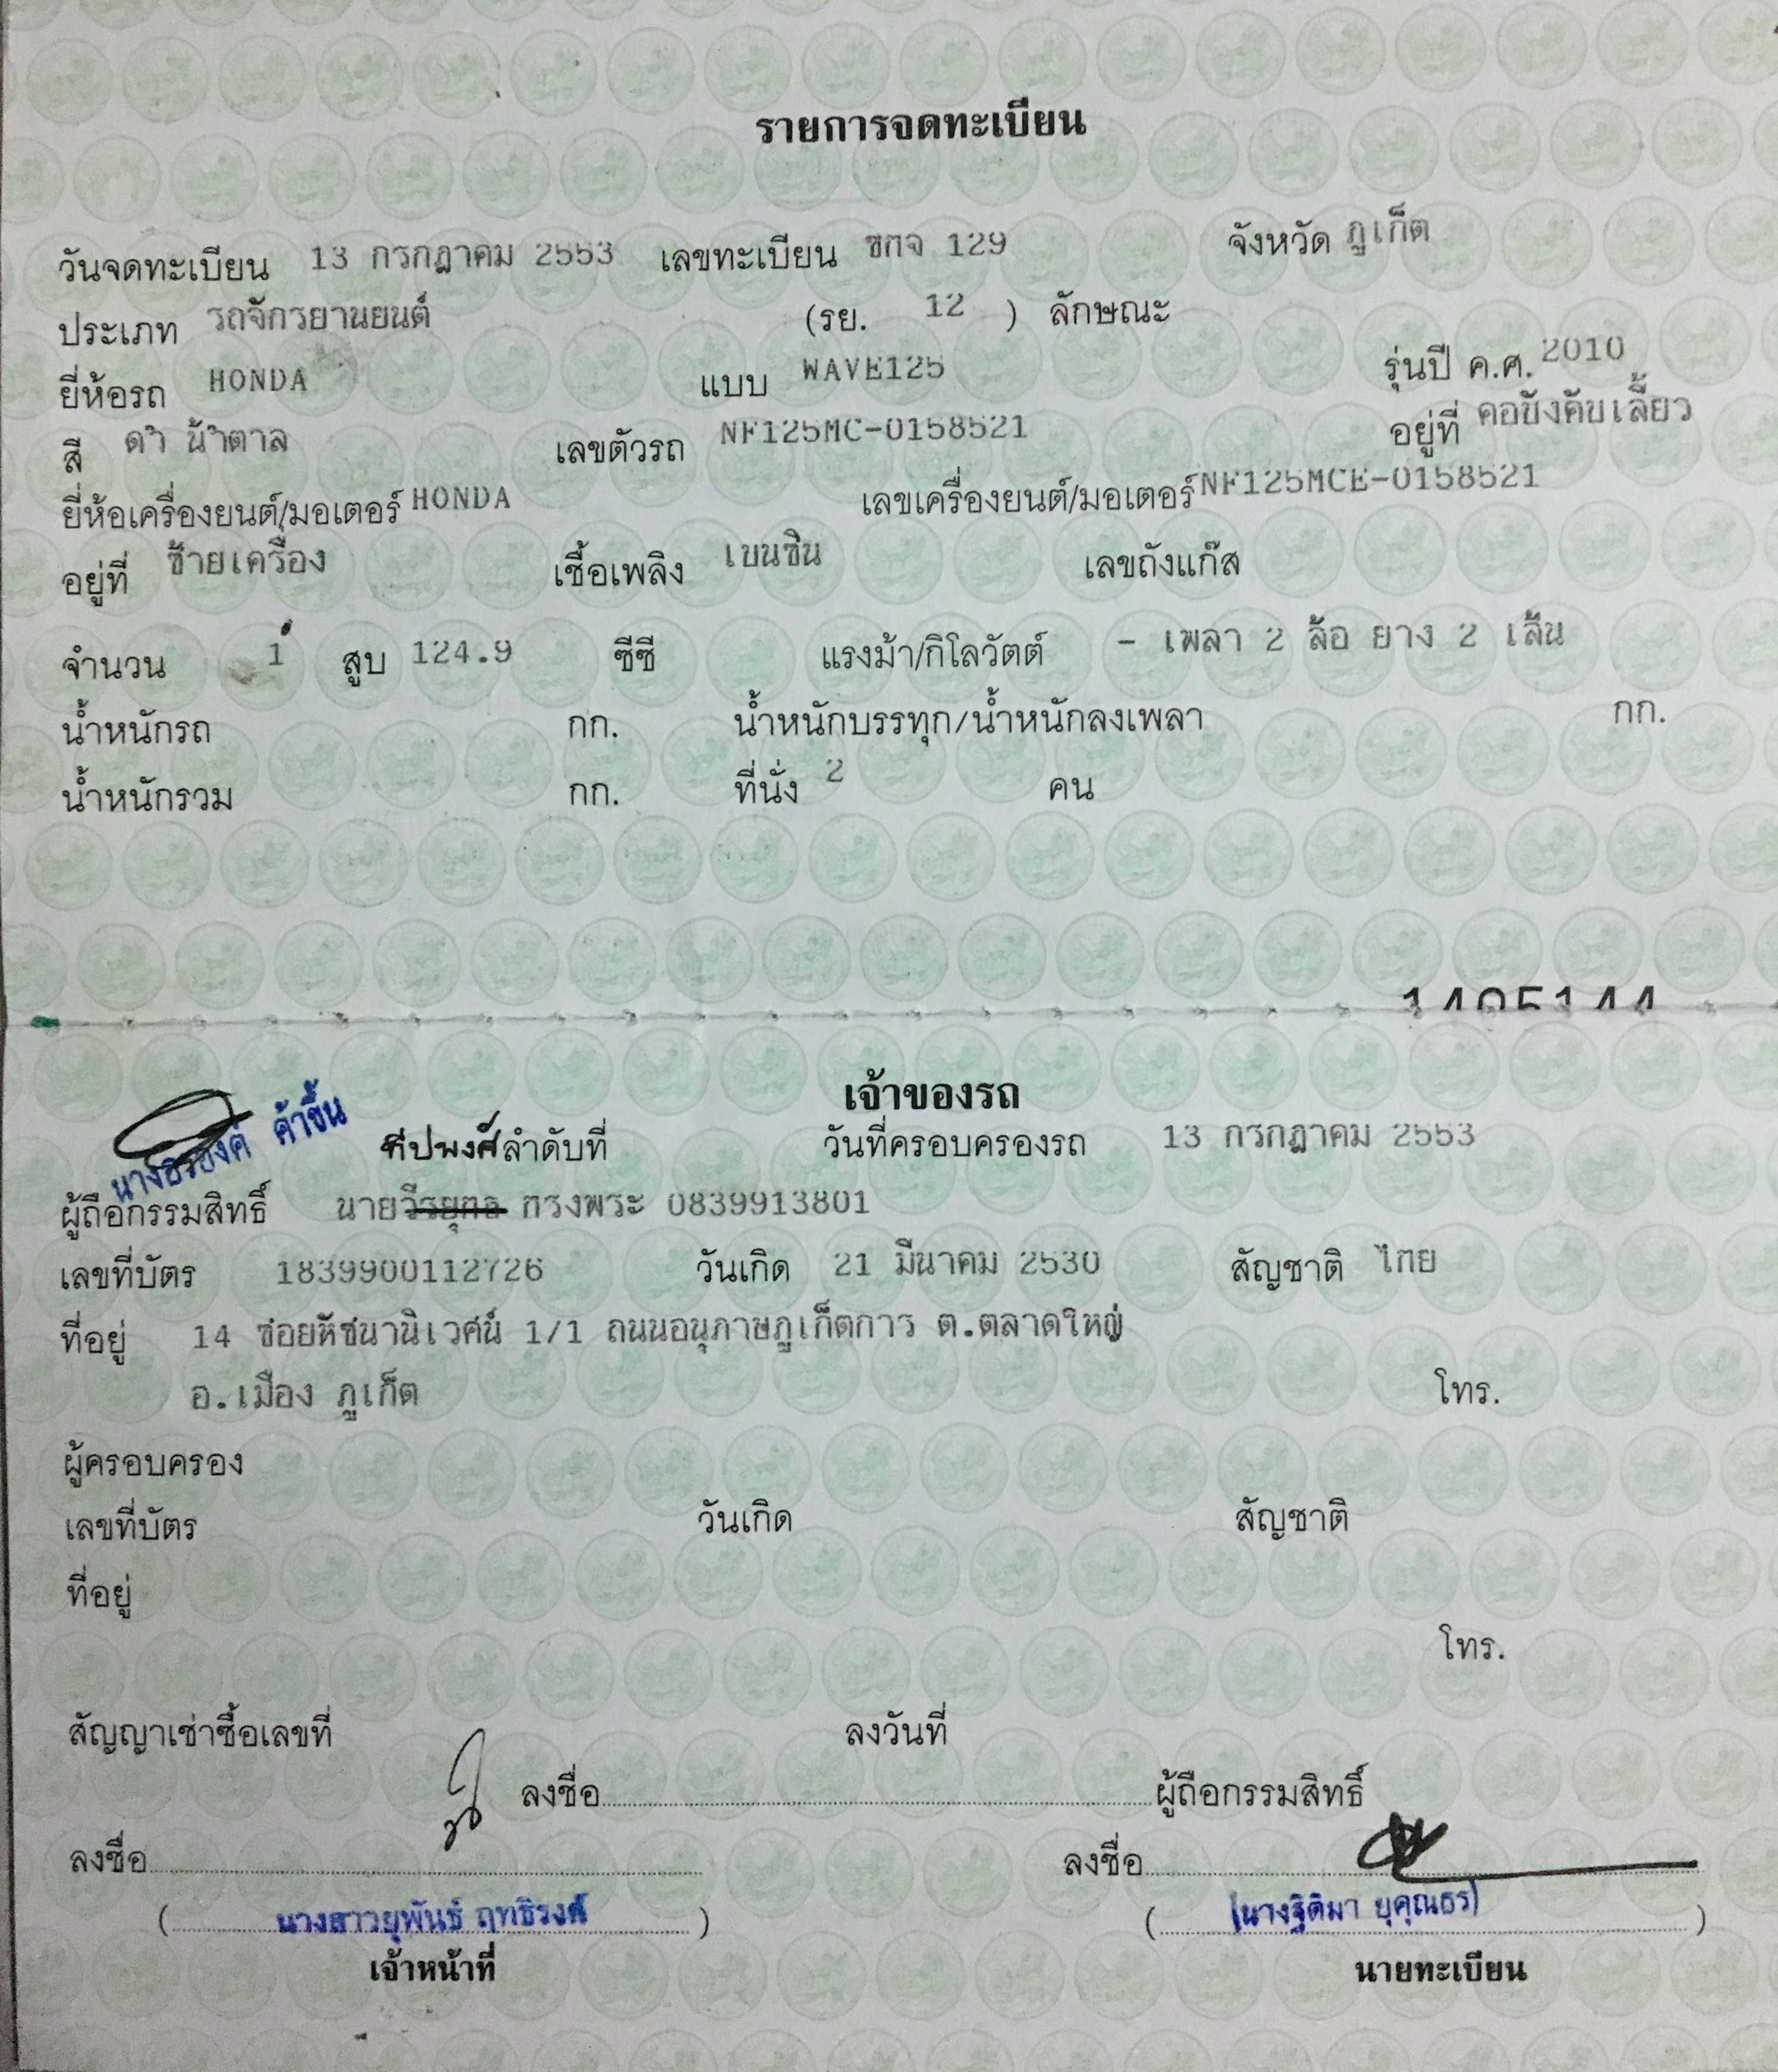 รายการจดทะเบียน
วันจดทะเบียน 13 กรกฎาคม 2553 เลขทะเบียน ขกจ 129 จังหวัด ภูเก็ต
ประเภท รถจักรยานยนต์ (รย. 12 ) ลักษณะ
ยี่ห้อรถ HONDA แบบ WAVE125 รุ่นปี ค.ศ. 2010
สี ดำ น้ำตาล เลขตัวรถ NF125MC-0158521 อยู่ที่ คอบังคับเลี้ยว
ยี่ห้อเครื่องยนต์/มอเตอร์ HONDA เลขเครื่องยนต์/มอเตอร์ NF125MCE-0158521
อยู่ที่ ซ้ายเครื่อง เชื้อเพลิง เบนซิน เลขถังแก๊ส
จำนวน 1 สูบ 124.9 ซีซี แรงม้า/กิโลวัตต์ - เพลา 2 ล้อ ยาง 2 เส้น
น้ำหนักรถ กก. น้ำหนักบรรทุก/น้ำหนักลงเพลา กก.
น้ำหนักรวม กก. ที่นั่ง 2 คน
1405144
เจ้าของรถ
ทีปพงศ์ ลำดับที่ วันที่ครอบครองรถ 13 กรกฎาคม 2553
ค้าขึ้น
ผู้ถือกรรมสิทธิ์ นาย ทรงพระ 0839913801
เลขที่บัตร 1839900112726 วันเกิด 21 มีนาคม 2530 สัญชาติ ไทย
ที่อยู่ 14 ซอยหัชนานิเวศน์ 1/1 ถนนอนุภาษภูเก็ตการ ต.ตลาดใหญ่
อ.เมือง ภูเก็ต โทร.
ผู้ครอบครอง
เลขที่บัตร วันเกิด สัญชาติ
ที่อยู่
โทร.
สัญญาเช่าซื้อเลขที่ ลงวันที่
ลงชื่อ ผู้ถือกรรมสิทธิ์
ลงชื่อ ลงชื่อ
( นางสาวยุพันธ์ ฤทธิรงค์ ) ( (นางฐิติมา ยุคุณธร) )
เจ้าหน้าที่ นายทะเบียน